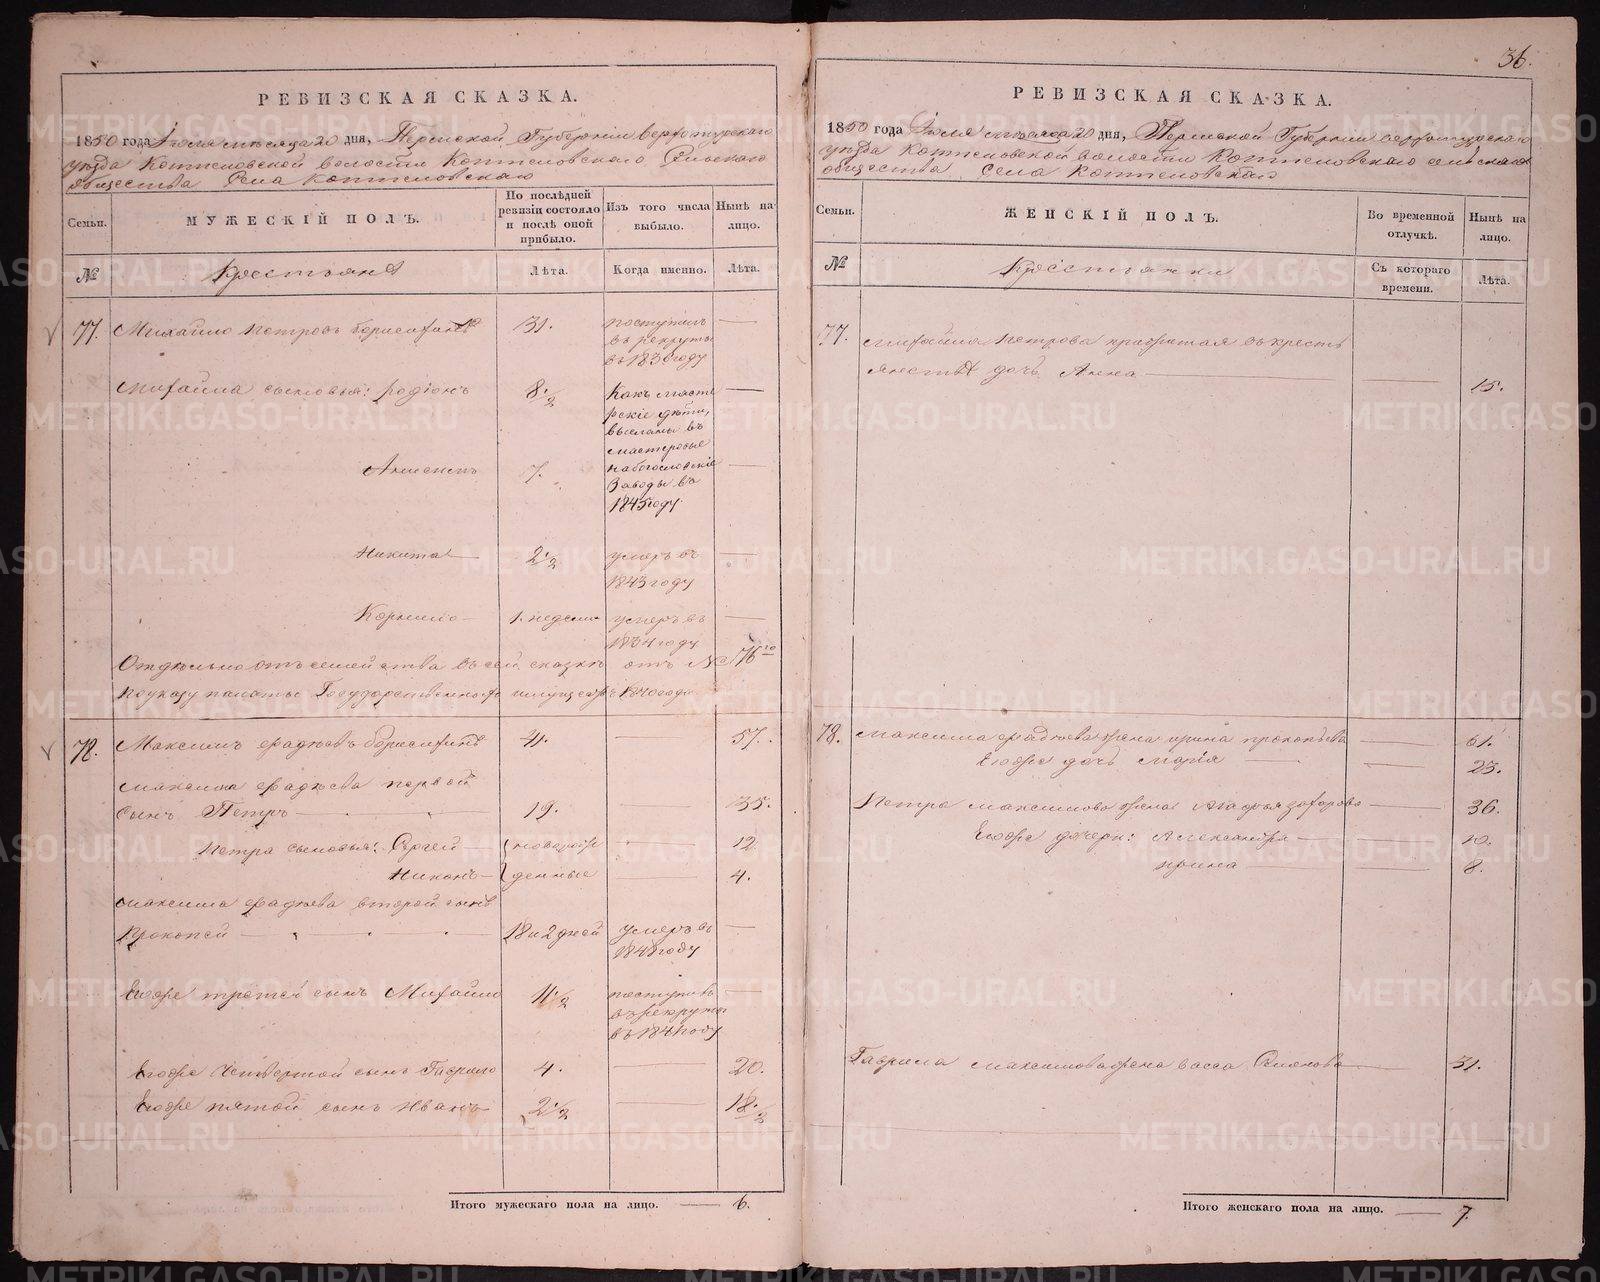 РЕВИЗСКАЯ СКАЗКА.
1850 года Июля месяца 20 дня, Пермской Губернии верхотурскаго
уезда Коптеловской волости Коптеловскаго Сельскаго
общества Села Коптеловскаго
Семьи.
МУЖЕСКІЙ ПОЛЪ.
По последней ревизіи состояло и после оной прибыло.
Изъ того числа выбыло.
Ныне на лицо.
№
Крестьяне
Лета.
Когда именно.
Лета.
77. Михайло Петровъ 31. поступилъ въ рекруты
Михайла сыновья: родіонъ 8 1/2 Какъ мастерскіе дети, высланы въ мастеровые на богословскіе Заводы въ 1845 году
7.
Никита 2 1/2 умеръ въ 1843 году
Корнило 1. недели умеръ въ 1834 году
Отдельно отъ семейства въ сей сказке отъ № 76го
по указу палаты Государственныхъ имуществъ 1840 года
78. Максимъ фадеевъ 41. 57.
Максима фадеева первой
сынъ Петръ 19. 35.
Петра сыновья: Сергей новорож 12
Никонъ денные 4.
Максима фадеева второй сынъ
Прокопей 18 и 2 дней умеръ въ году
Егоже третей сынъ Михайло 11 1/2 поступилъ въ рекруты въ 1841 году
Егоже Четвертой сынъ Гаврило 4. 20.
Егоже пятой сынъ Иванъ 2 1/2 18 1/2
Итого мужескаго пола на лицо. 6.
36.
РЕВИЗСКАЯ СКАЗКА.
1850 года Июля месяца 20 дня, Пермской Губернии верхотурскаго
уезда Коптеловской волости Коптеловскаго сельскаго
общества Села Коптеловскаго
Семьи.
ЖЕНСКІЙ ПОЛЪ.
Во временной отлучке.
Ныне на лицо.
№
Крестьянки
Съ котораго времени.
Лета.
77. Михайла Петрова прижитая въ кресть
янстве дочь Анна 15.
78. Максима фадеева жена ирина прокопьева 61.
Егоже дочь марія 23.
Петра максимова жена 36.
Егоже дочери: Александра 10.
ирина 8.
Гаврила максимова жена васса Семенова 31.
Итого женскаго пола на лицо. 7.
METRIKI.GASO-URAL.RU